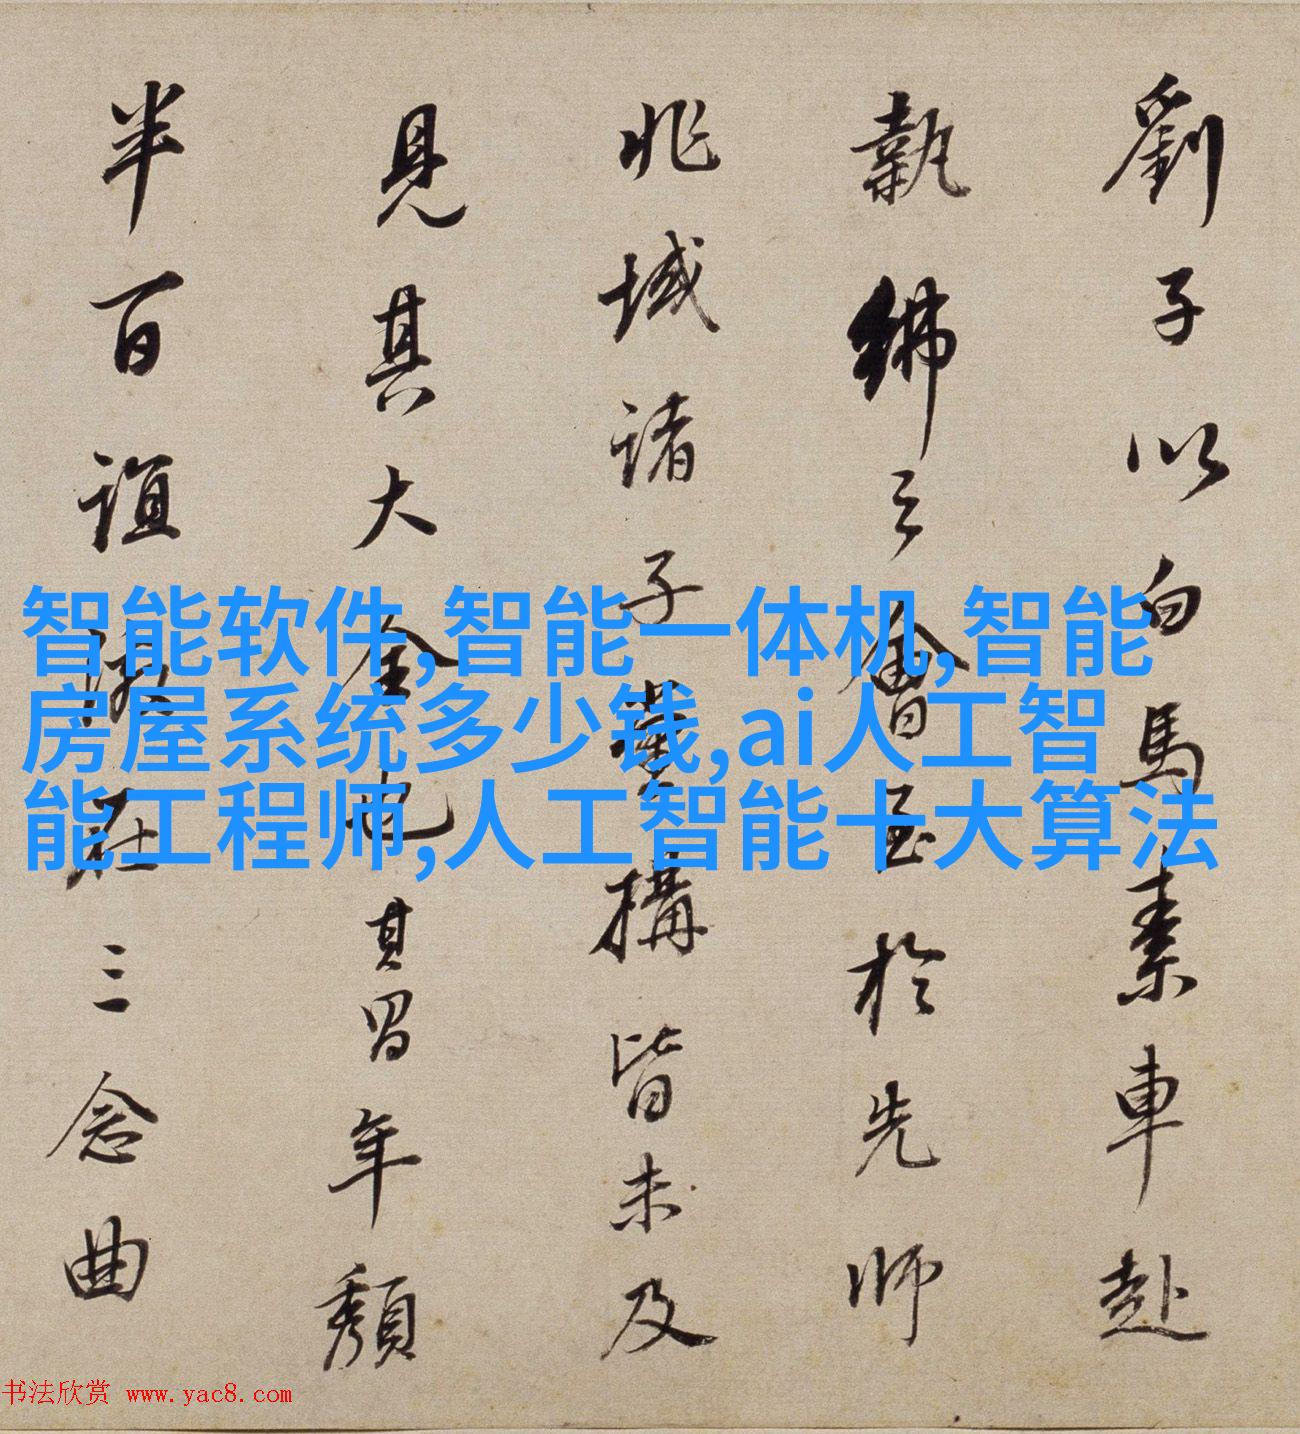 劉子以白馬素車赴
執紼之會至於先師
兆域諸子堂構皆未及
見其大全也其年頹
半百誼在三念曲
智能软件,智能一体机,智能
房屋系统多少钱,ai人工智
能工程师,人工智能十大算法
书法欣赏 www.yac8.com